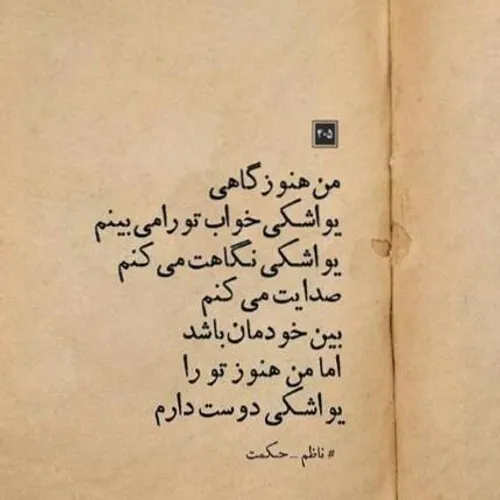 ۴۰۵
من هنوز گاهی
یواشکی خواب تو را می بینم
یواشکی نگاهت می کنم
صدایت می کنم
بین خودمان باشد
اما من هنوز تو را
یواشکی دوست دارم
# ناظم _ حکمت